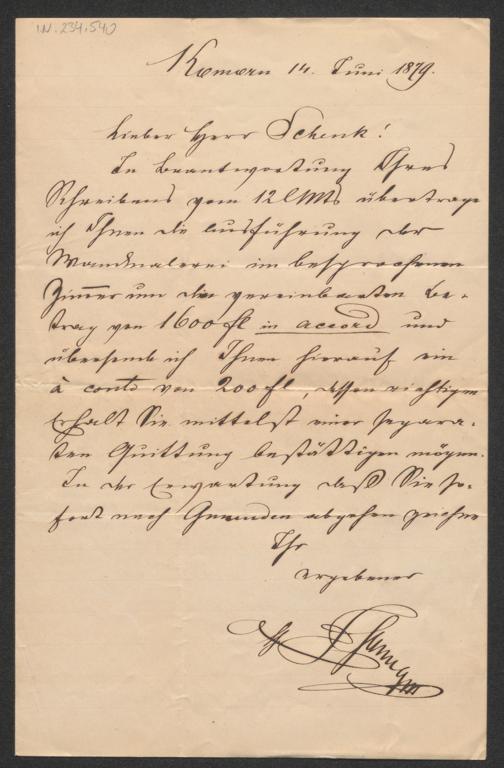 IN. 234.540
Komorn 14. Juni 1879.
Lieber Herr Schenk!
In Beantwortung Ihres
Schreibens vom 12 l Mts übertrage
ich Ihnen die Ausführung der
Wandmalerei im besprochenen
Zimmer um den vereinbarten Be-
trag von 1600 fl in accord und
übersende ich Ihnen hierauf ein
à conto von 200 fl, dessen richtigen
Erhalt Sie mittelst einer separa-
ten Quittung bestättigen mögen.
In der Erwartung daß Sie so-
fort nach Gmunden abgehen zeichne
Ihr
ergebener